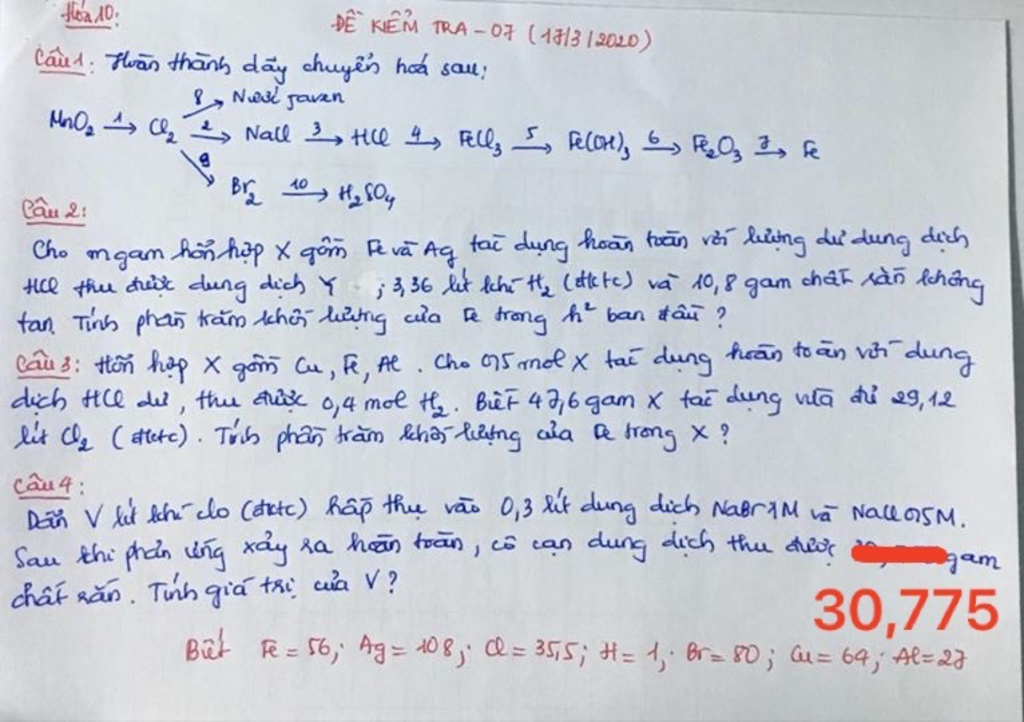 Hóa 10:
ĐỀ KIỂM TRA - 07 (17/3/2020)
Câu 1: Hoàn thành dãy chuyển hoá sau:
8 Nước javen
MnO₂ 1→ Cl₂ 2→ NaCl 3→ HCl 4→ FeCl₃ 5→ Fe(OH)₃ 6→ Fe₂O₃ 7→ Fe
9 Br₂ 10→ H₂SO₄
Câu 2:
Cho m gam hỗn hợp X gồm Fe và Ag tác dụng hoàn toàn với lượng dư dung dịch
HCl thu được dung dịch Y ; 3,36 lít khí H₂ (đktc) và 10,8 gam chất rắn không
tan. Tính phần trăm khối lượng của Fe trong h² ban đầu ?
Câu 3: Hỗn hợp X gồm Cu, Fe, Al. Cho 0,5 mol X tác dụng hoàn toàn với dung
dịch HCl dư, thu được 0,4 mol H₂. Biết 47,6 gam X tác dụng vừa đủ 29,12
lít Cl₂ (đktc). Tính phần trăm khối lượng của Fe trong X ?
Câu 4:
Dẫn V lít khí clo (đktc) hấp thụ vào 0,3 lít dung dịch NaBr 1M và NaCl 0,5M.
Sau khi phản ứng xảy ra hoàn toàn, cô cạn dung dịch thu được gam
chất rắn. Tính giá trị của V ?
30,775
Biết Fe = 56; Ag = 108; Cl = 35,5; H = 1; Br = 80; Cu = 64; Al = 27